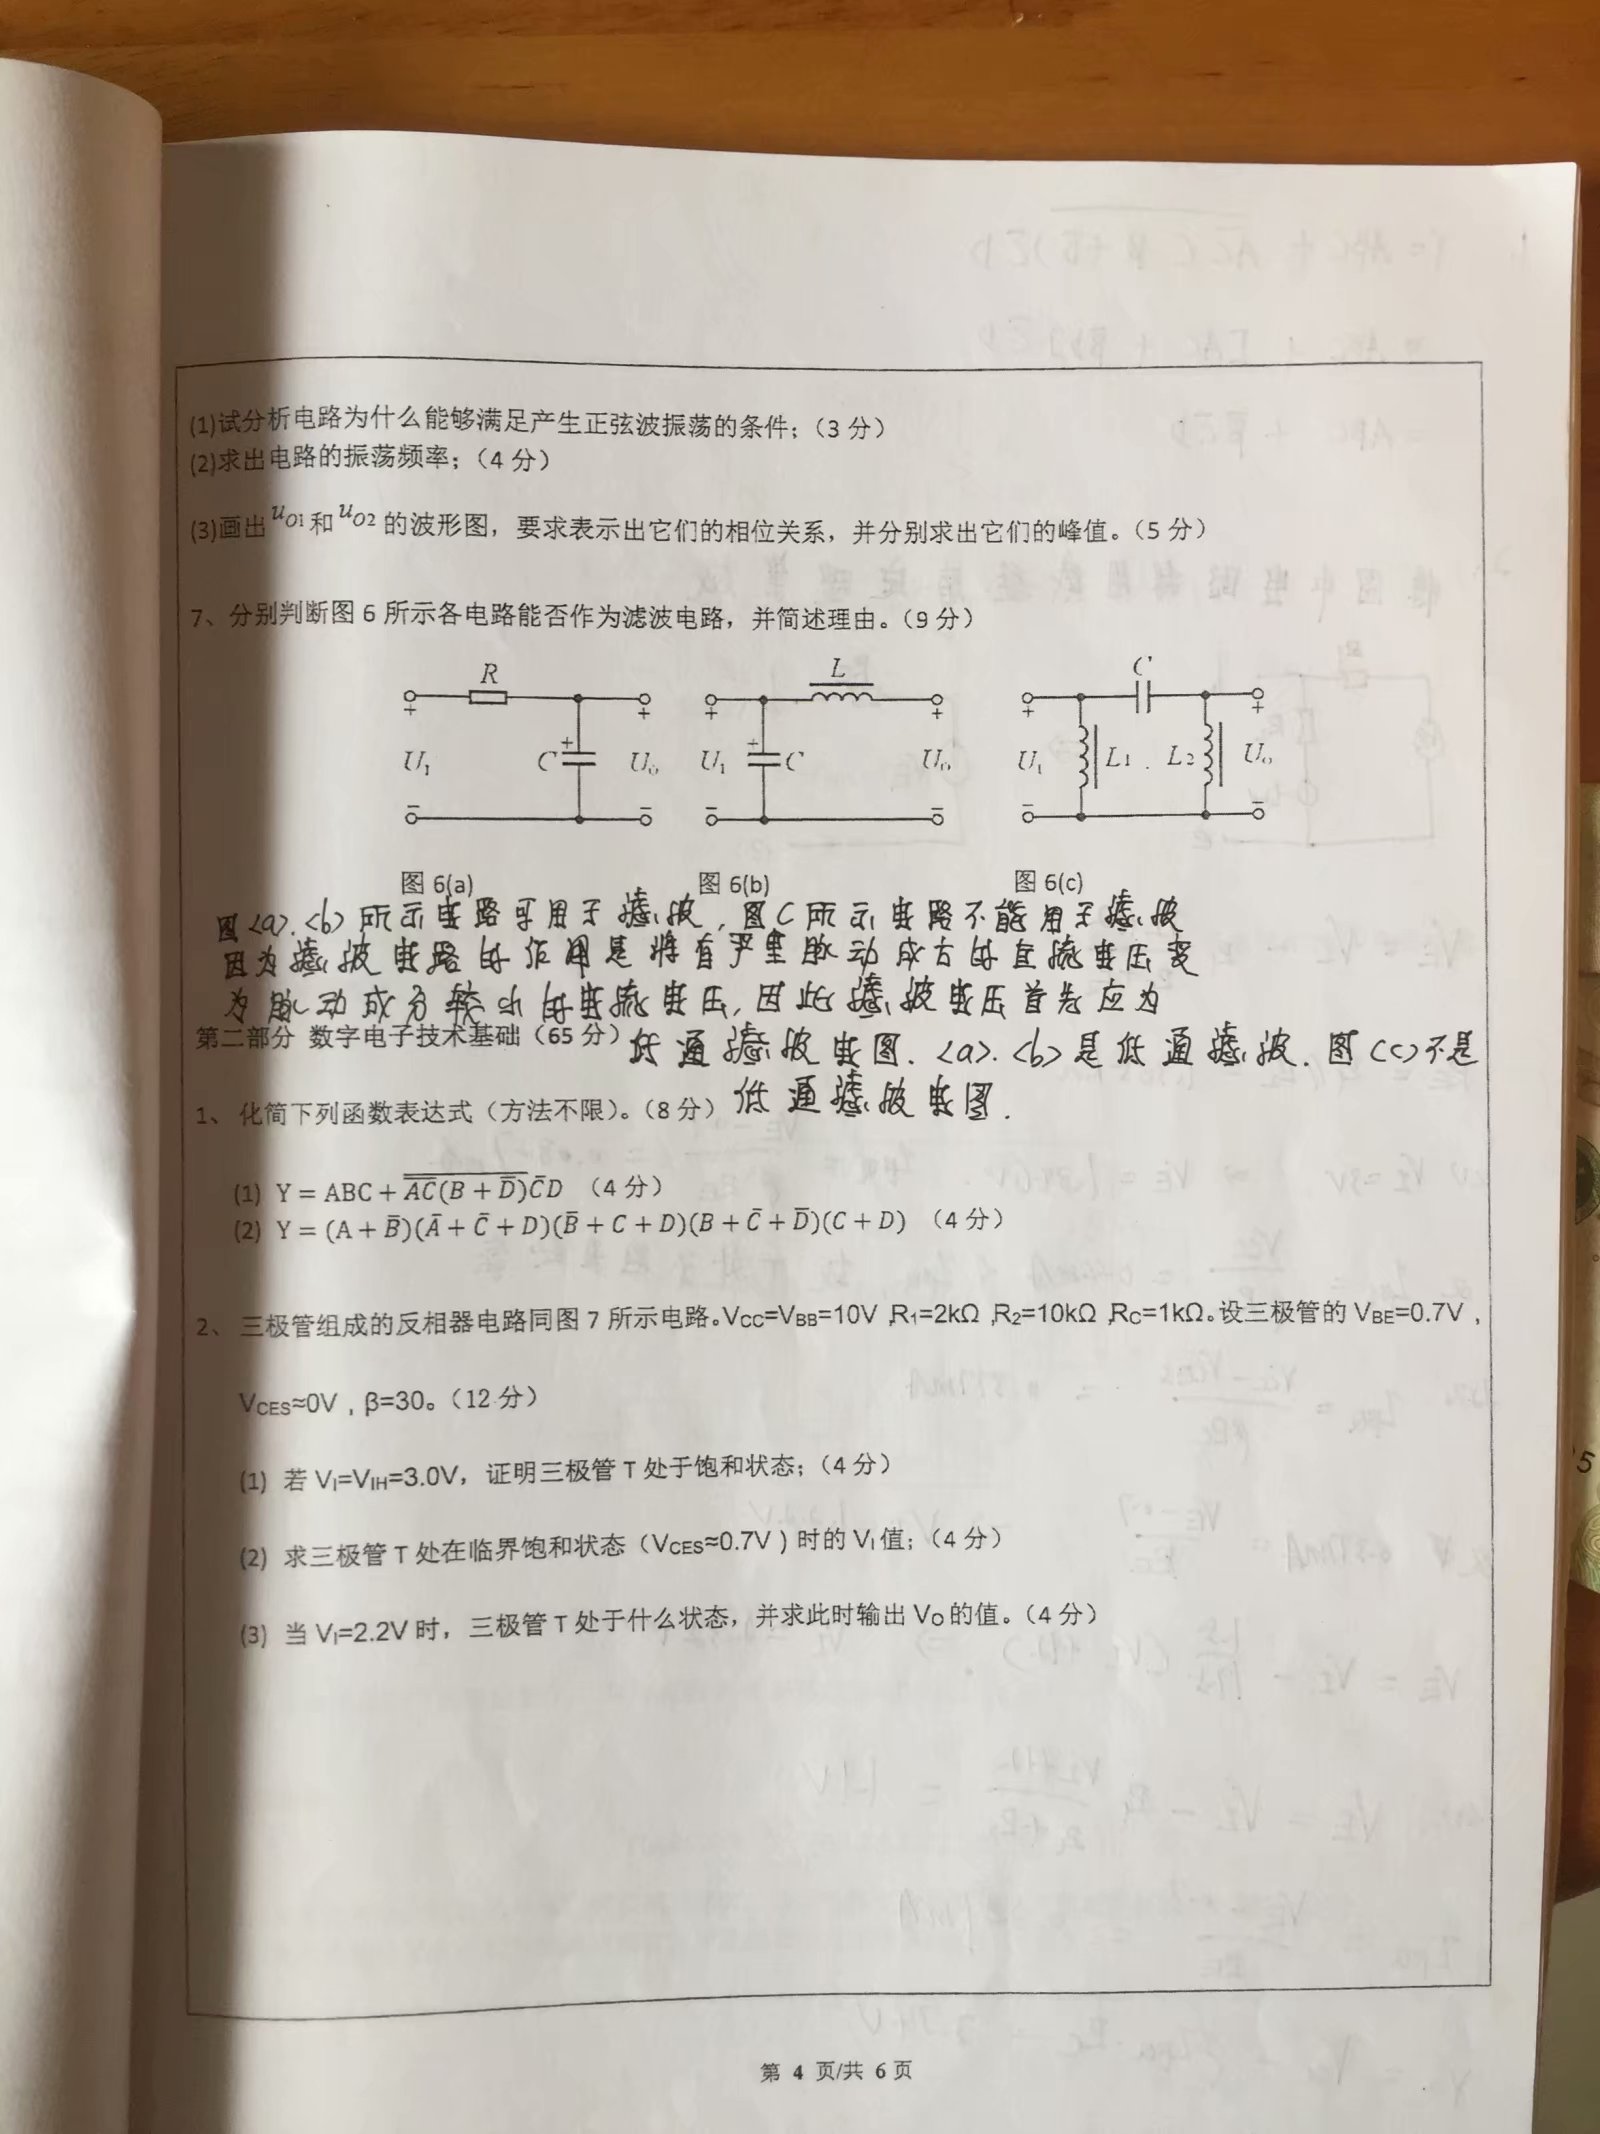 (1)试分析电路为什么能够满足产生正弦波振荡的条件；（3 分）
(2)求出电路的振荡频率；（4 分）
(3)画出 uO1 和 uO2 的波形图，要求表示出它们的相位关系，并分别求出它们的峰值。（5 分）
7、分别判断图 6 所示各电路能否作为滤波电路，并简述理由。（9 分）
R L C
+ + + + + +
U1 C + Uo U1 + C Uo U1 L1 L2 Uo
− − − − − −
图 6(a) 图 6(b) 图 6(c)
图<a>.<b>所示电路可用于滤波，图C所示电路不能用于滤波
因为滤波电路的作用是将有严重脉动成方的直流电压变
为脉动成分较小的直流电压，因此滤波电压首先应为
第二部分 数字电子技术基础（65 分） 低通滤波电图．<a>.<b>是低通滤波．图(c)不是
低通滤波电图．
1、 化简下列函数表达式（方法不限）。（8 分）
(1) Y = ABC + \overline{\overline{A\overline{C}}(B + \overline{D})}\overline{C}D （4 分）
(2) Y = (A + B̄)(Ā + C̄ + D)(B̄ + C + D)(B + C̄ + D̄)(C + D) （4 分）
2、 三极管组成的反相器电路同图 7 所示电路。VCC=VBB=10V ,R1=2kΩ ,R2=10kΩ ,RC=1kΩ。设三极管的 VBE=0.7V，
VCES≈0V，β=30。（12 分）
(1) 若 VI=VIH=3.0V，证明三极管 T 处于饱和状态；（4 分）
(2) 求三极管 T 处在临界饱和状态（VCES≈0.7V）时的 VI 值；（4 分）
(3) 当 VI=2.2V 时，三极管 T 处于什么状态，并求此时输出 VO 的值。（4 分）
第 4 页/共 6 页